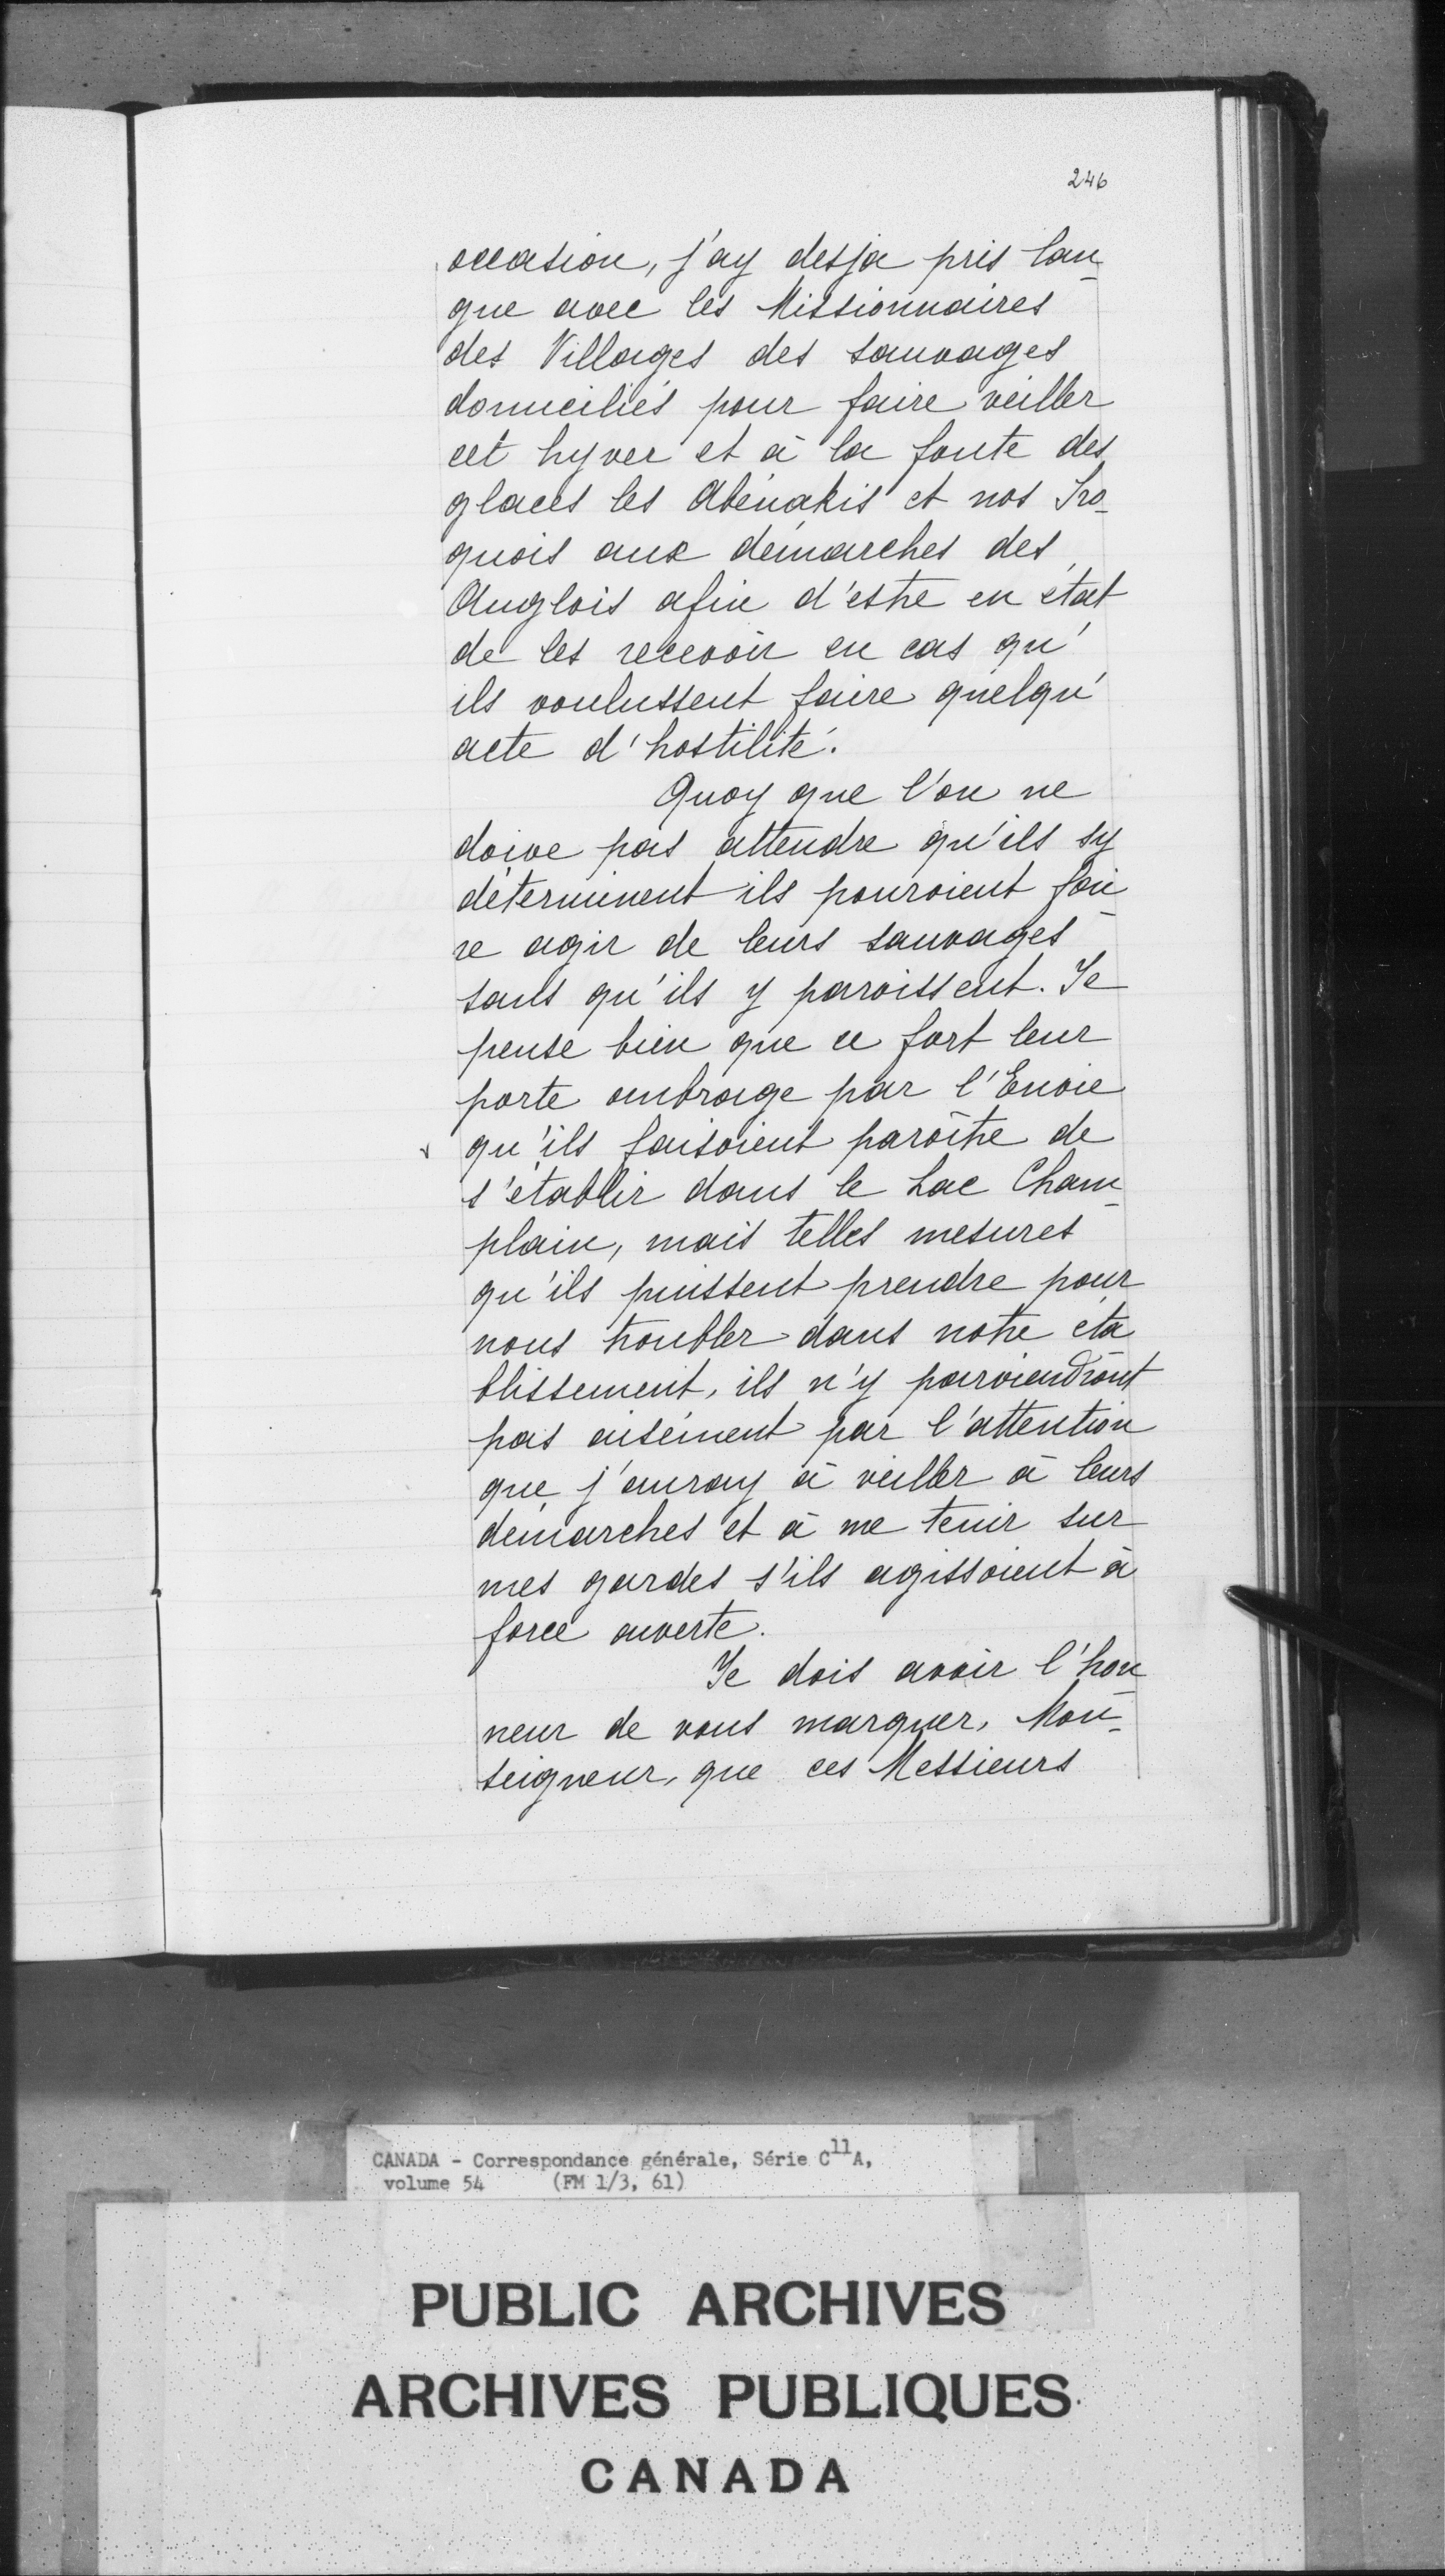 246
occasion, j'ay desja pris lan-
gue avec les Missionnaires
des Villages des sauvages
domiciliés pour faire veiller
cet hyver et à la fonte des
glaces les Abénakis et nos Iro-
quois aux démarches des
Anglois afin d'estre en état
de les recevoir en cas qu'
ils voulussent faire quelqu'
acte d'hostilité.
Quoy que l'on ne
doive pas attendre qu'ils sy
déterminent ils pouroient fai-
re agir de leurs sauvages
sans qu'ils y paroissent. Je
pense bien que ce fort leur
porte ombrage par l'Envie
qu'ils faisoient paroître de
s'établir dans le Lac Cham-
plain, mais telles mesures
qu'ils puissent prendre pour
nous troubler dans notre éta
blissement, ils n'y parviendront
pas aisément par l'attention
que j'auray à veiller à leurs
démarches et à me tenir sur
mes gardes s'ils agissoient à
force ouverte.
Je dois avoir l'hon
neur de vous marquer, Mon-
seigneur, que ces Messieurs
CANADA - Correspondance générale, Série C11A,
volume 54 (FM 1/3, 61)
PUBLIC ARCHIVES
ARCHIVES PUBLIQUES
CANADA